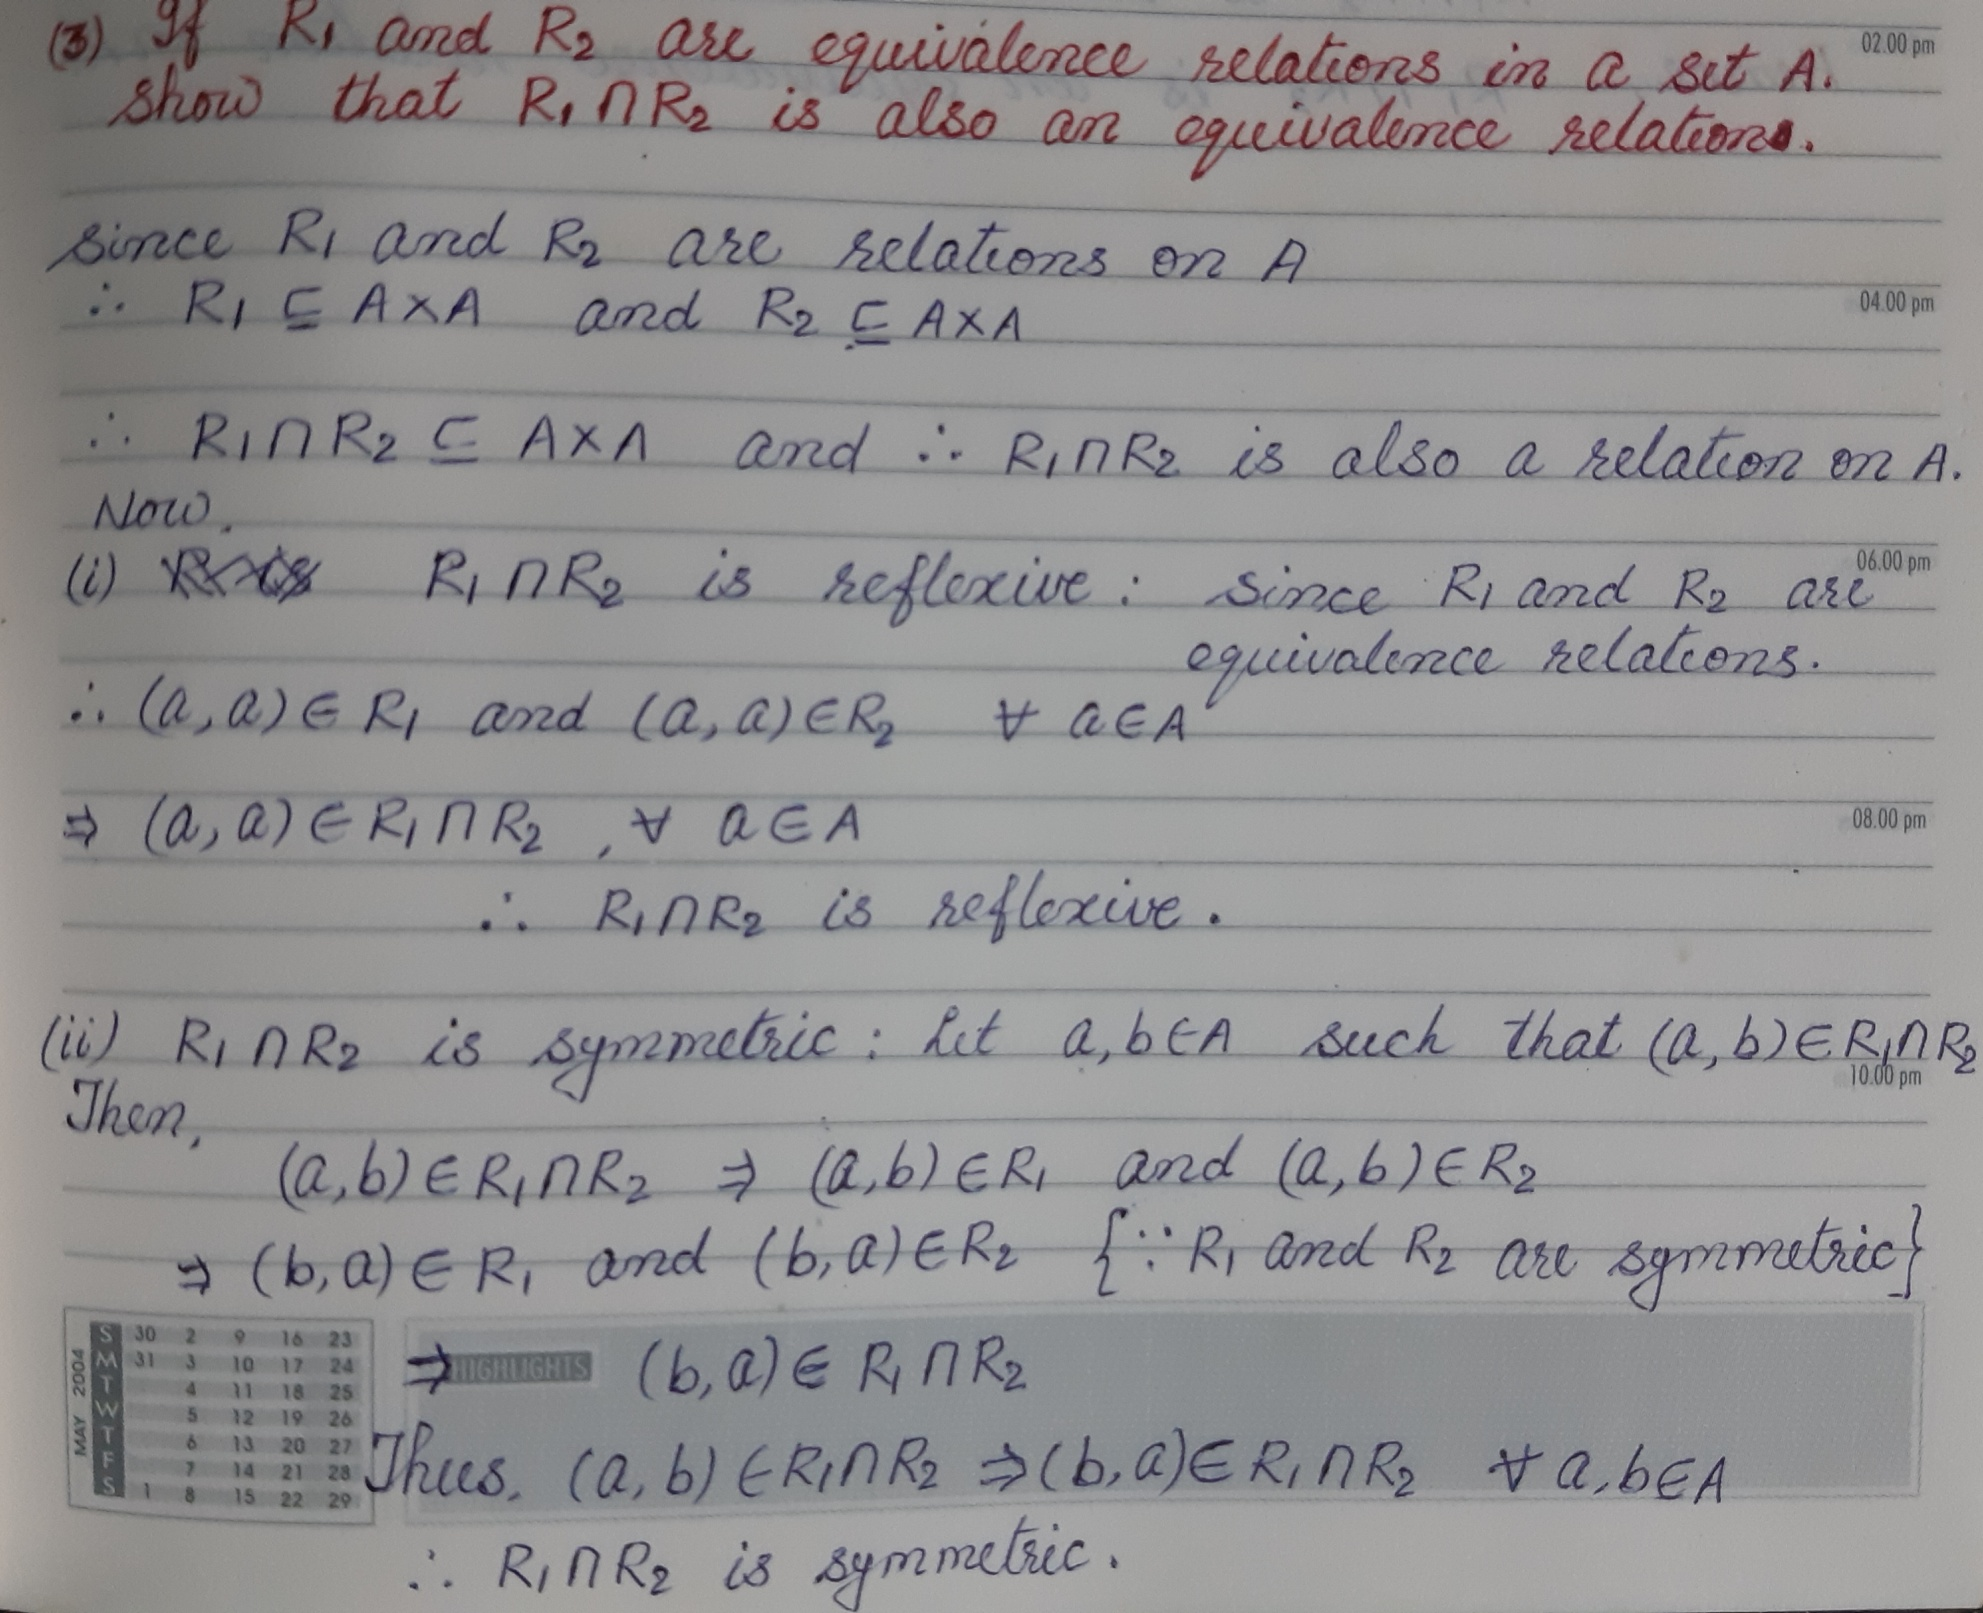 (3) If R₁ and R₂ are equivalence relations in a set A.
02.00 pm
show that R₁ ∩ R₂ is also an equivalence relations.
since R₁ and R₂ are relations on A
∴ R₁ ⊆ A×A and R₂ ⊆ A×A
04.00 pm
∴ R₁∩R₂ ⊆ A×A and ∴ R₁∩R₂ is also a relation on A.
Now,
(i) R₁ ∩ R₂ is reflexive : since R₁ and R₂ are
06.00 pm
equivalence relations.
∴ (a,a) ∈ R₁ and (a,a) ∈ R₂ ∀ a∈A
⇒ (a,a) ∈ R₁ ∩ R₂ , ∀ a∈A
08.00 pm
∴ R₁∩R₂ is reflexive.
(ii) R₁ ∩ R₂ is symmetric : Let a,b∈A such that (a,b)∈R₁∩R₂
10.00 pm
Then,
(a,b) ∈ R₁∩R₂ ⇒ (a,b) ∈R₁ and (a,b) ∈R₂
⇒ (b,a) ∈ R₁ and (b,a) ∈R₂ {∵ R₁ and R₂ are symmetric}
MAY 2004
S 30 2 9 16 23
M 31 3 10 17 24
T 4 11 18 25
W 5 12 19 26
T 6 13 20 27
F 7 14 21 28
S 1 8 15 22 29
HIGHLIGHTS
⇒ (b,a) ∈ R₁ ∩ R₂
Thus, (a,b) ∈R₁∩R₂ ⇒ (b,a)∈ R₁ ∩ R₂ ∀ a,b∈A
∴ R₁∩R₂ is symmetric.